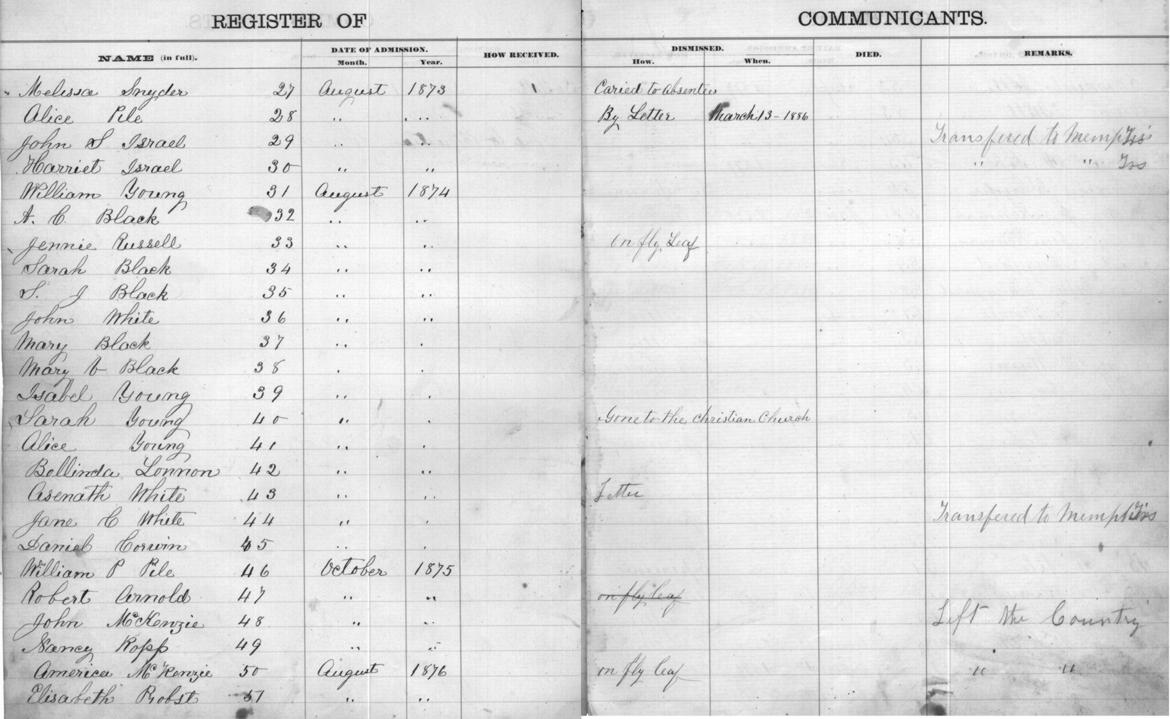 REGISTER OF COMMUNICANTS.
NAME (in full). DATE OF ADMISSION. HOW RECEIVED. DISMISSED. DIED. REMARKS.
Month. Year. How. When.
Melissa Snyder 27 August 1873 Caried to absentee
Alice Pile 28 " " By Letter March 13-1886
John S Israel 29 " " Transfered to Memphis
Harriet Israel 30 " " " "
William Young 31 August 1874
A. C Black 32 " "
Jennie Russell 33 " " on fly Leaf
Sarah Black 34 " "
S. J Black 35 " "
John White 36 " "
Mary Black 37 " "
Mary V Black 38 " "
Isabel Young 39 " "
Sarah Young 40 " " Gone to the Christian Church
Alice Young 41 " "
Bellinda Lonnon 42 " "
Asenath White 43 " " Letter
Jane C White 44 " " Transfered to Memphis
Daniel Corwin 45 " "
William P Pile 46 October 1875
Robert Arnold 47 " " on fly leaf
John McKenzie 48 " " Left the Country
Nancy Ropp 49 " "
America McKenzie 50 August 1876 on fly leaf " "
Elisabeth Probst 51 " "